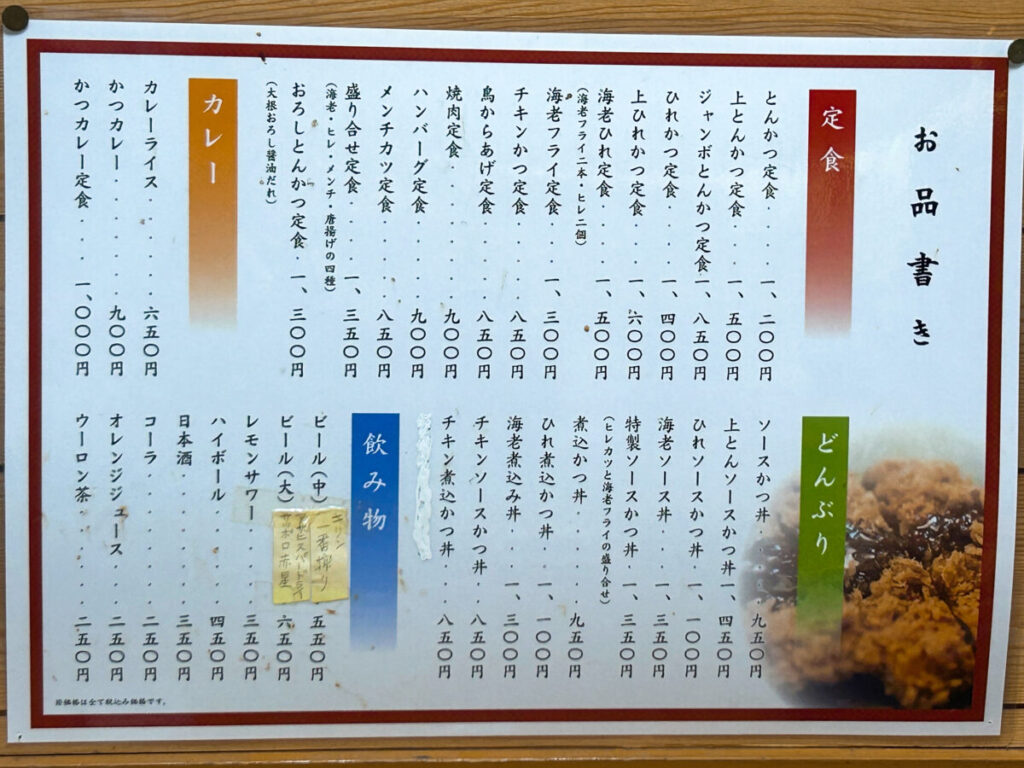 お品書き
定食
とんかつ定食・・・一、二〇〇円
上とんかつ定食・・・一、五〇〇円
ジャンボとんかつ定食一、八五〇円
ひれかつ定食・・・一、四〇〇円
上ひれかつ定食・・一、六〇〇円
海老ひれ定食・・・一、五〇〇円
(海老フライ二本・ヒレ二個)
海老フライ定食・・一、三〇〇円
チキンかつ定食・・・・八五〇円
鳥からあげ定食・・・・八五〇円
焼肉定食・・・・・・・九〇〇円
ハンバーグ定食・・・・九〇〇円
メンチカツ定食・・・・八五〇円
盛り合せ定食・・・一、三五〇円
(海老・ヒレ・メンチ・唐揚げの四種)
おろしとんかつ定食・一、三〇〇円
(大根おろし醤油だれ)
カレー
カレーライス・・・・・六五〇円
かつカレー・・・・・・九〇〇円
かつカレー定食・・・一、〇〇〇円
どんぶり
ソースかつ丼・・・・九五〇円
上とんソースかつ丼一、四五〇円
ひれソースかつ丼・一、一〇〇円
海老ソース丼・・・一、三五〇円
特製ソースかつ丼・一、三五〇円
(ヒレカツと海老フライの盛り合せ)
煮込かつ丼・・・・・九五〇円
ひれ煮込かつ丼・・一、一〇〇円
海老煮込み丼・・・一、三〇〇円
チキンソースかつ丼・・八五〇円
チキン煮込かつ丼・・・八五〇円
飲み物
ビール(中) 五五〇円
キリン
一番搾り
ビール(大) 六五〇円
サッポロ赤星
レモンサワー 三五〇円
ハイボール・・・・・四五〇円
日本酒・・・・・・・三五〇円
コーラ・・・・・・・二五〇円
オレンジジュース・・・二五〇円
ウーロン茶・・・・・二五〇円
※価格は全て税込み価格です。